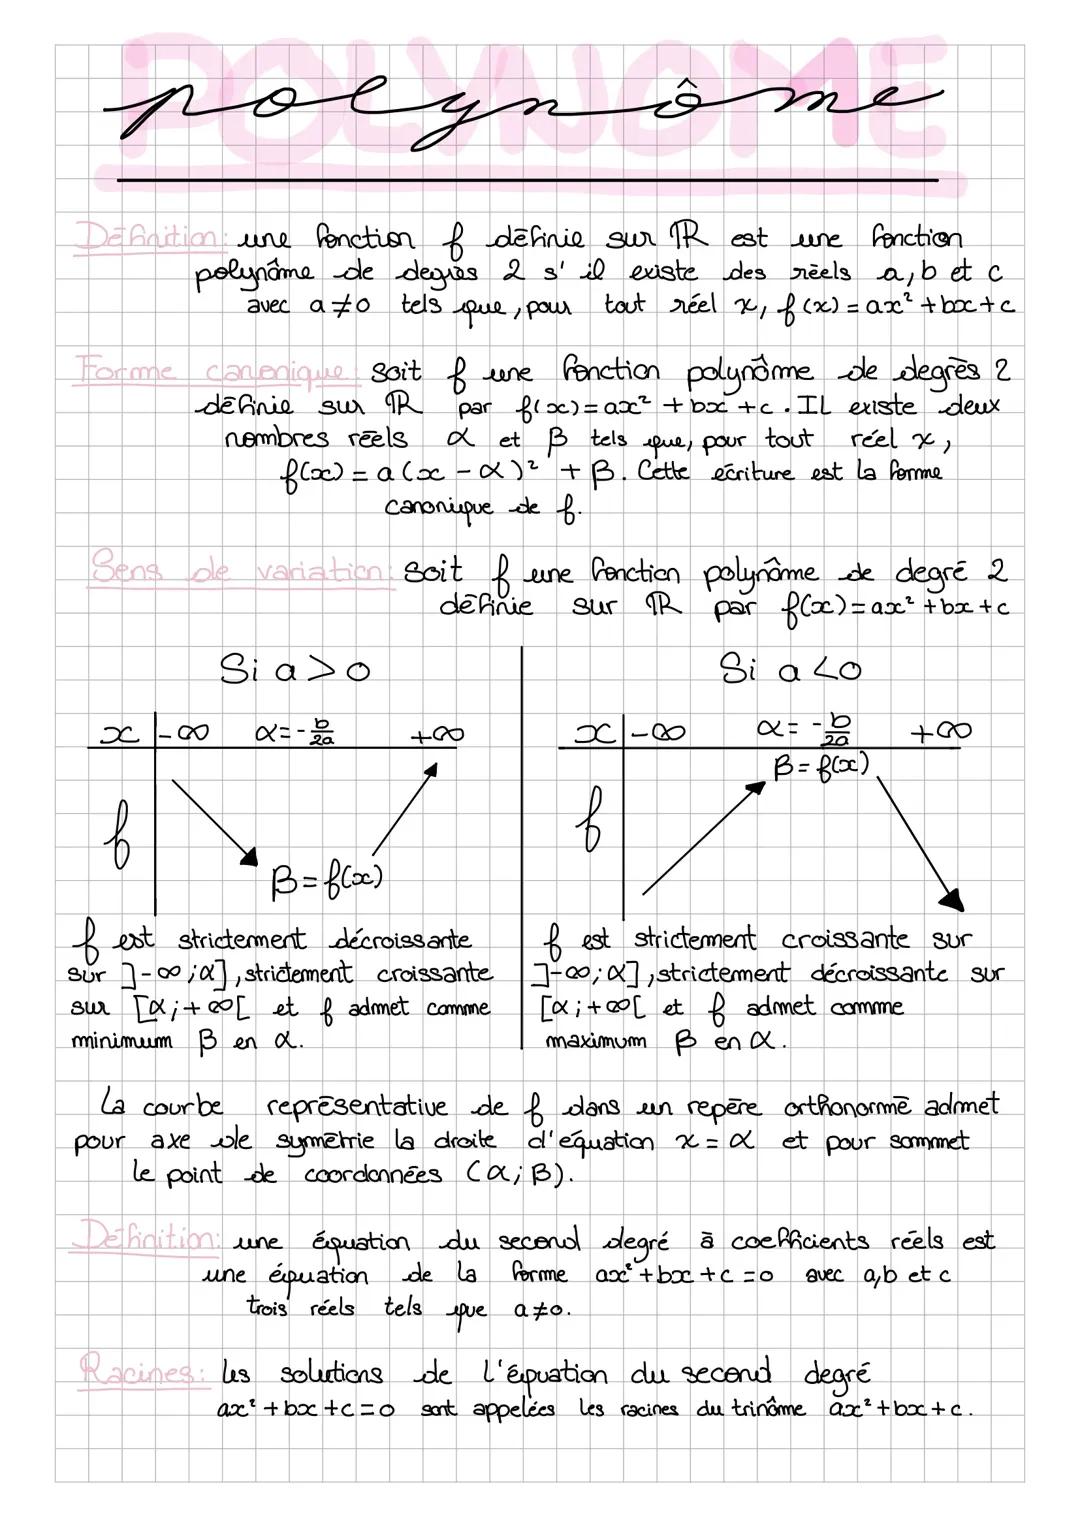 POLYNOME
polynôme
Définition: une fonction f définie sur ℝ est une fonction
polynôme de degrés 2 s'il existe des réels a, b et c
avec a≠0 tels que, pour tout réel x, f(x) = ax² + bx + c
Forme canonique: Soit f une fonction polynôme de degrès 2
définie sur ℝ par f(x) = ax² + bx + c. IL existe deux
nombres réels α et β tels que, pour tout réel x,
f(x) = a(x - α)² + β. Cette écriture est la forme
canonique de f.
Sens de variation: Soit f une fonction polynôme de degré 2
définie sur ℝ par f(x) = ax² + bx + c
Si a > 0
x -∞ α = -b/2a +∞
f
β = f(x)
f est strictement décroissante
sur ]-∞; α], strictement croissante
sur [α; +∞[ et f admet comme
minimum β en α.
Si a < 0
x -∞ α = -b/2a +∞
β = f(x)
f
f est strictement croissante sur
]-∞; α], strictement décroissante sur
[α; +∞[ et f admet comme
maximum β en α.
La courbe représentative de f dans un repère orthonormé admet
pour axe de symétrie la droite d'équation x = α et pour sommet
le point de coordonnées (α; β).
Définition: une équation du second degré à coefficients réels est
une équation de la forme ax² + bx + c = 0 avec a, b et c
trois réels tels que a≠0.
Racines: les solutions de l'équation du second degré
ax² + bx + c = 0 sont appelées les racines du trinôme ax² + bx + c.